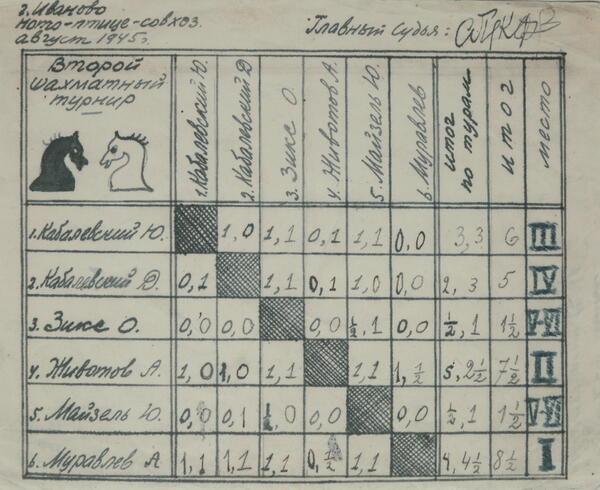 г. Иваново
ното-птице-совхоз.
август 1945г.
Главный Судья:
Второй шахматный турнир 1. Кабалевский Ю. 2. Кабалевский Д 3. Зикс О. 4. Животов А. 5. Майзель Ю. 6. Муравлев итог по турам итог место
1. Кабалевский Ю. 1, 0 1, 1 0, 1 1, 1 0, 0 3, 3 6 III
2. Кабалевский Д. 0, 1 1, 1 0, 1 1, 0 0, 0 2, 3 5 IV
3. Зикс О. 0, 0 0, 0 0, 0 ½, 1 0, 0 ½, 1 1½ V-VI
4. Животов А. 1, 0 1, 0 1, 1 1, 1 1, ½ 5, 2½ 7½ II
5. Майзель Ю. 0, 0 0, 1 ½, 0 0, 0 0, 0 ½, 1 1½ V-VI
6. Муравлев А 1, 1 1, 1 1, 1 0, ½ 1, 1 4, 4½ 8½ I